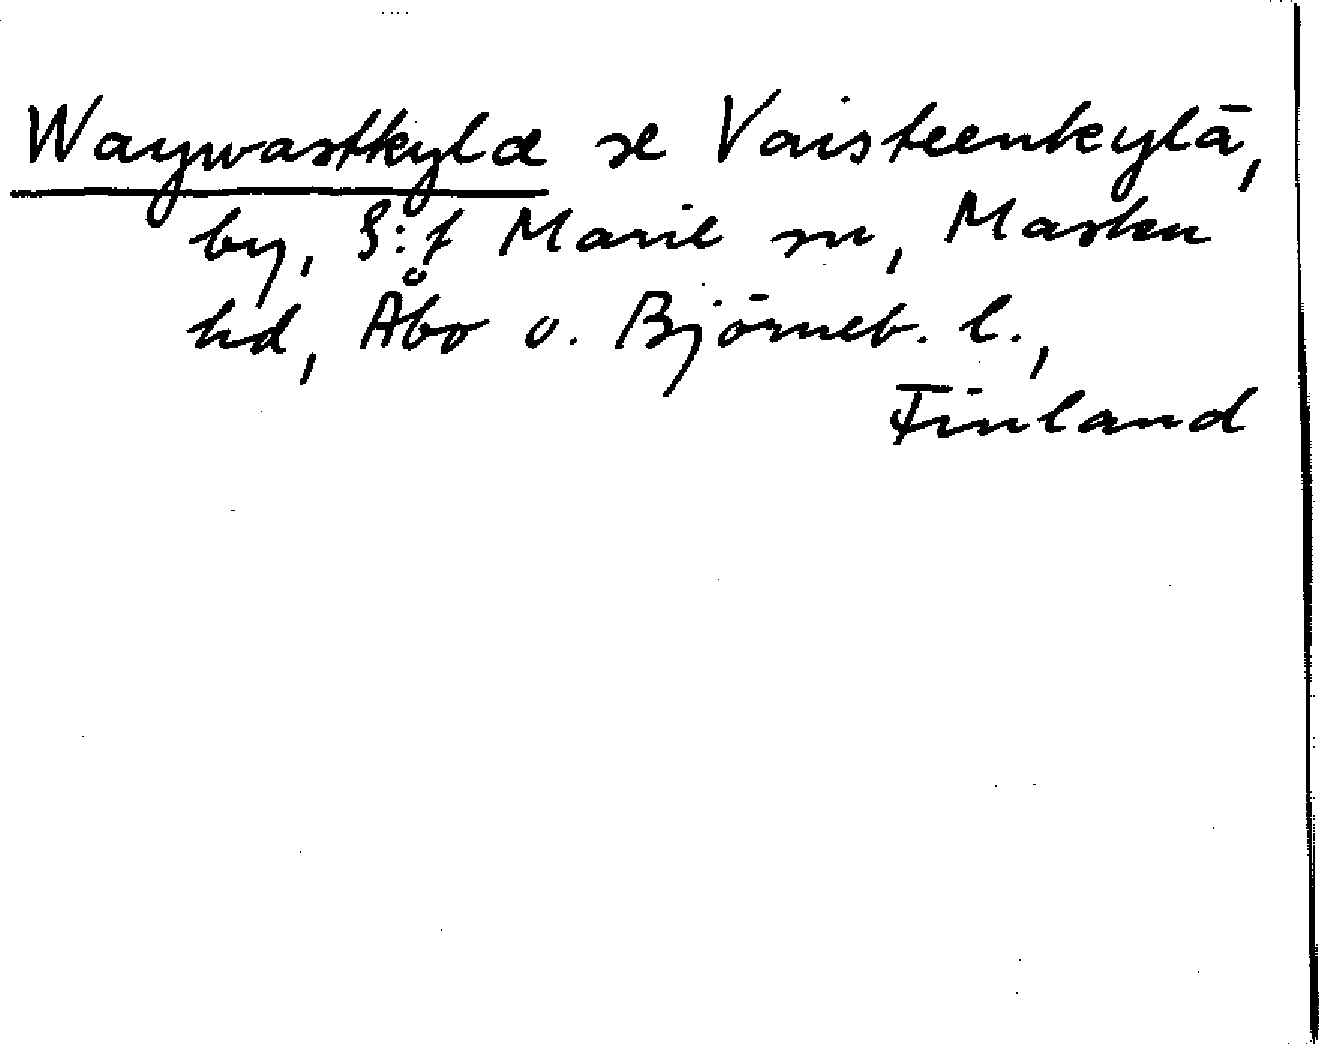 Waywastkylæ se Vaisteenkylä,
by, S:t Marie sn, Masku
hd, Åbo o. Björneb. l.,
Finland